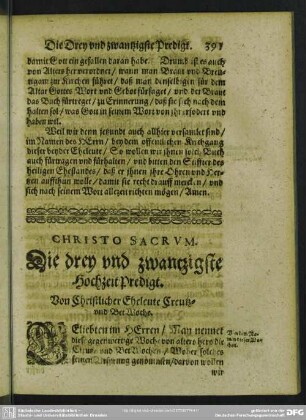 Die Drey vnd zwantzigste Predigt. 391
damit Gott ein gefallen daran habe. Drumb ist es auch
von Alters her verordnet / wann man Braut vnd Breu-
tigam zur Kirchen führet / daß man denselbigen für dem
Altar Gottes Wort vnd Gebot fürsaget / vnd der Braut
das Buch fürtreget / zu Erinnerung / daß sie sich nach dem
halten sol / was Gott in seinem Wort von ihr erfodert vnd
haben wil.
Weil wir denn jetzundt auch allhier versamlet sind /
im Namen des HErrn / bey dem öffentlichen Kirchgang
dieser beyder Eheleute / So wollen wir ihnen solch Buch
auch fürtragen vnd fürhalten / vnd bitten den Stiffter des
heiligen Ehestandes / daß er ihnen ihre Ohren vnd Her-
tzen auffthun wolle / damit sie recht darauff mercken / vnd
sich nach seinem Wort allezeit richten mögen / Amen.
CHRISTO SACRVM.
Die drey vnd zwantzigste
Hochzeit Predigt.
Von Christlicher Eheleute Creutz-
vnd Bet Woche.
GEliebten im HErren / Man nennet
diese gegenwertige Woch / von alters hero die
Creutz- vnd Bet Wochen / Woher solches
seinen Vrsprung genommen / darvon wollen
wir